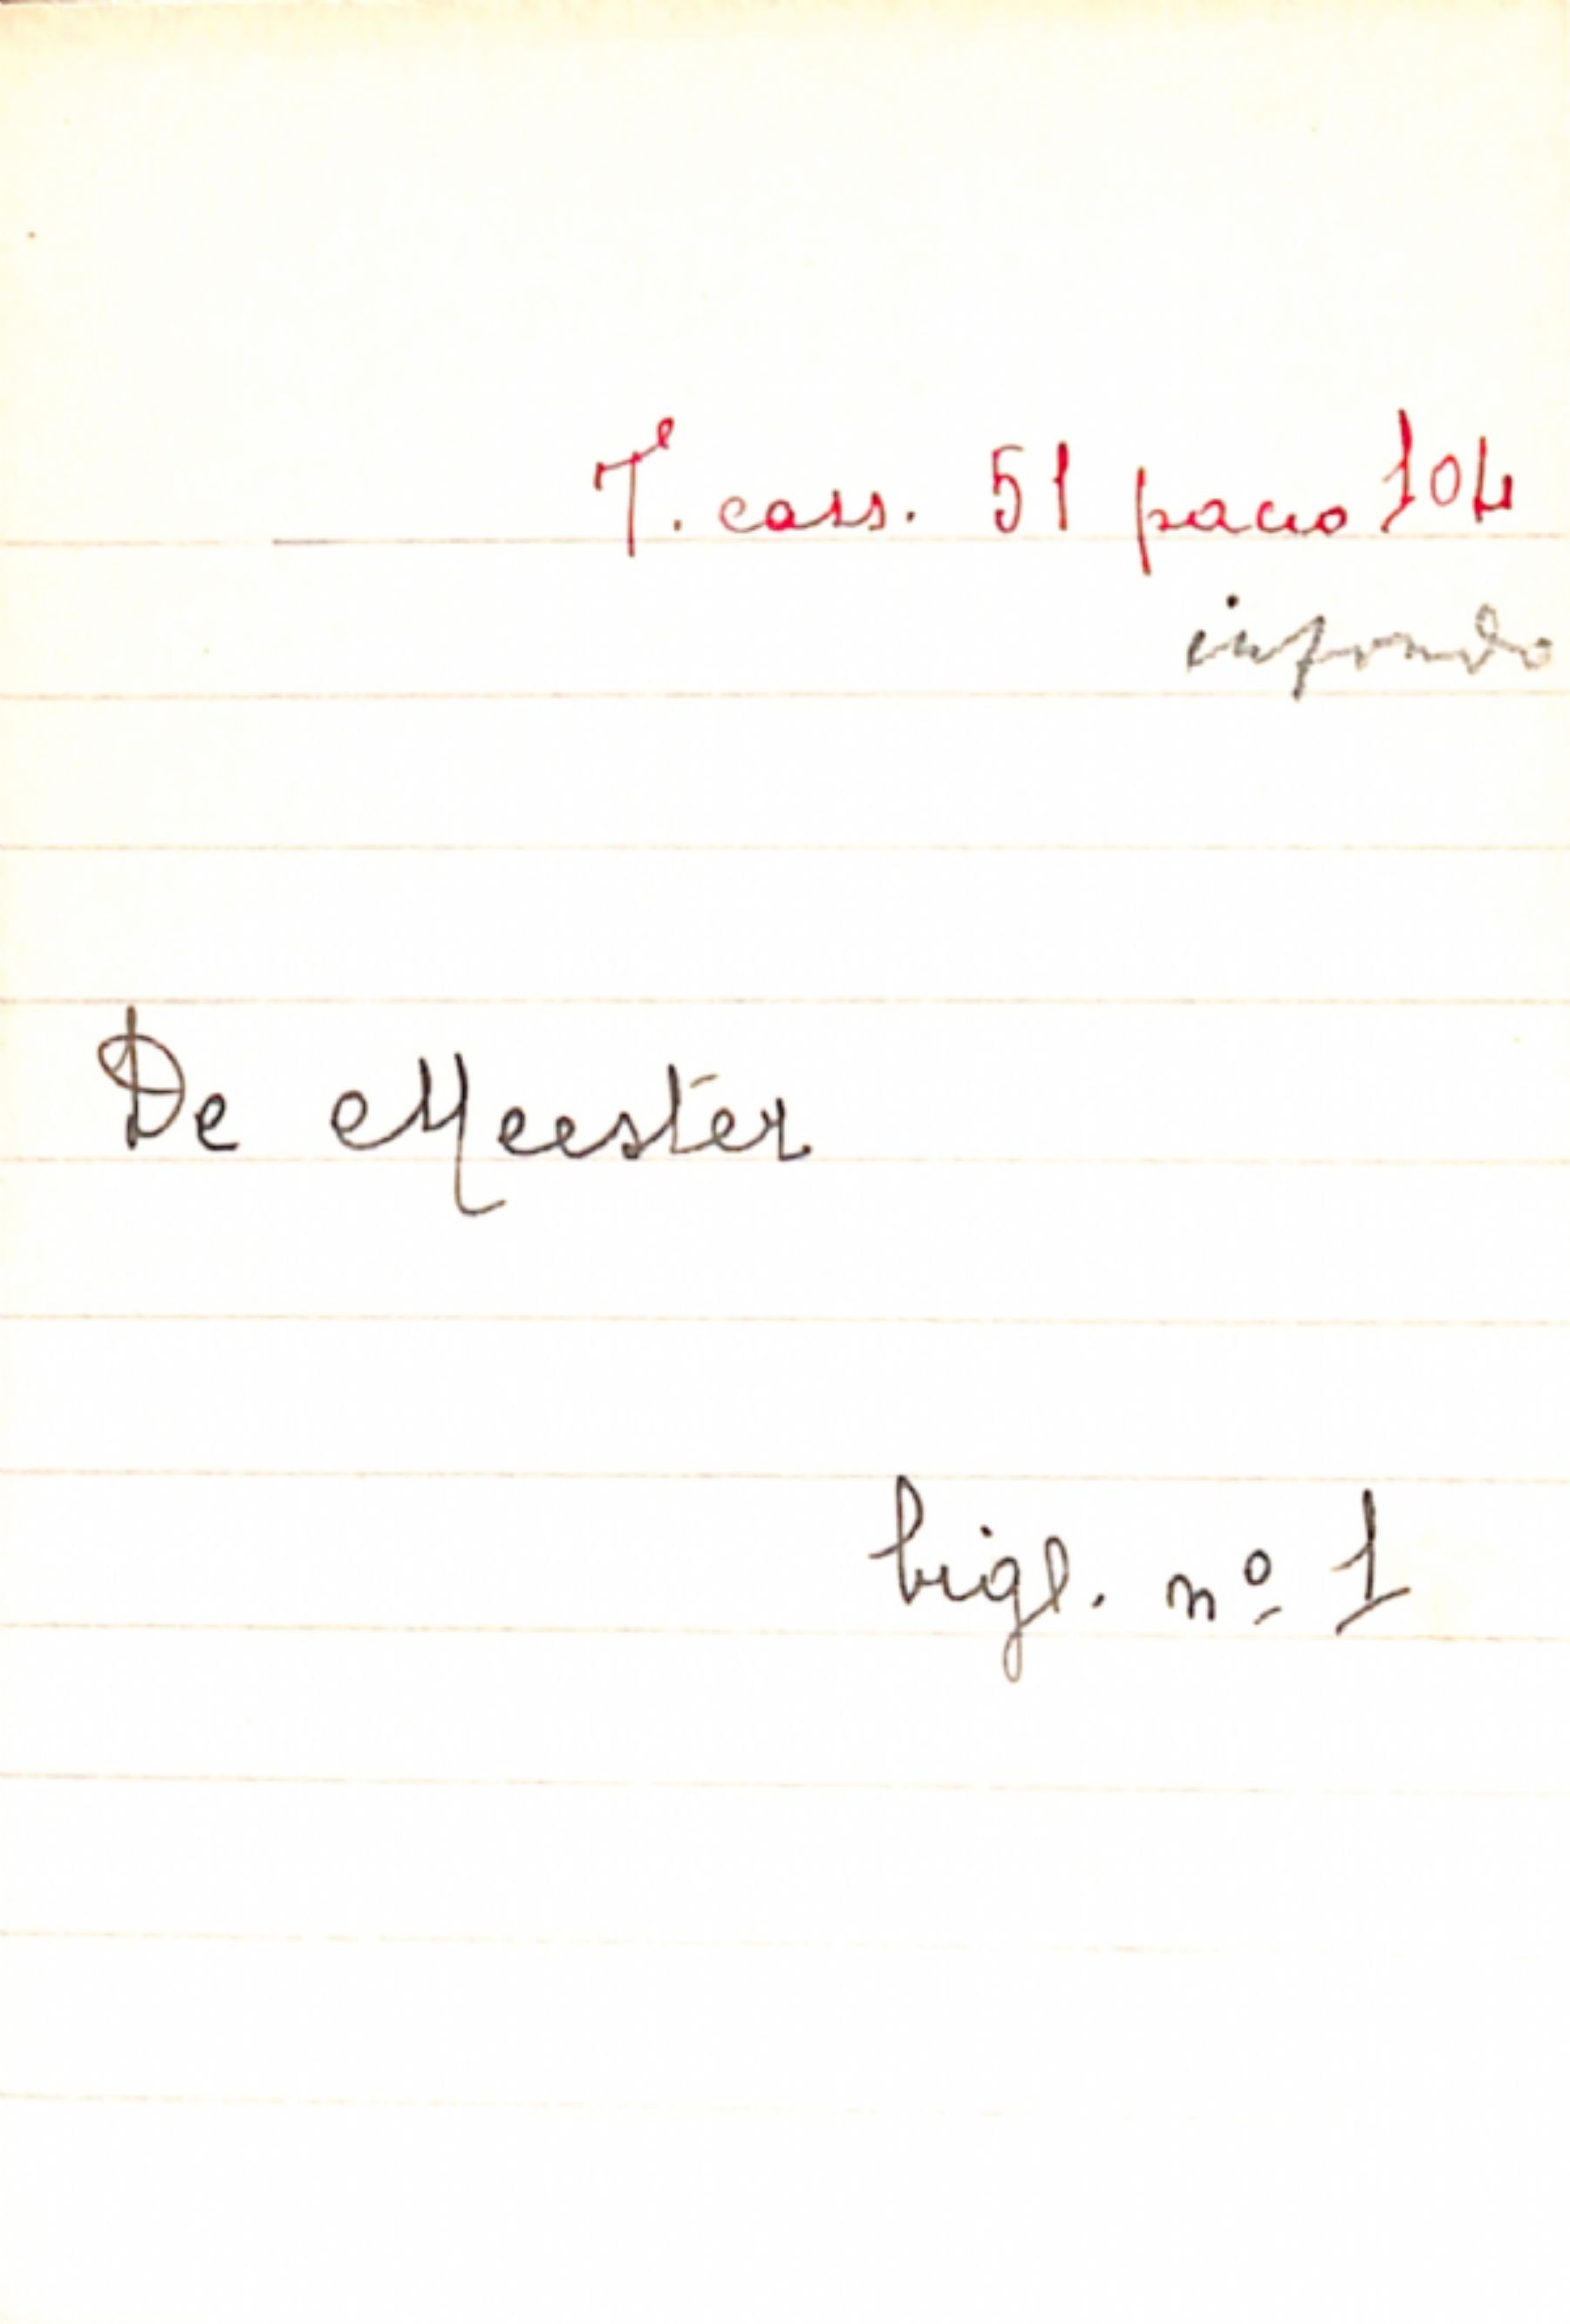 T. cass. 51 pacco 104
in fondo
De Meester
bigl. nº 1